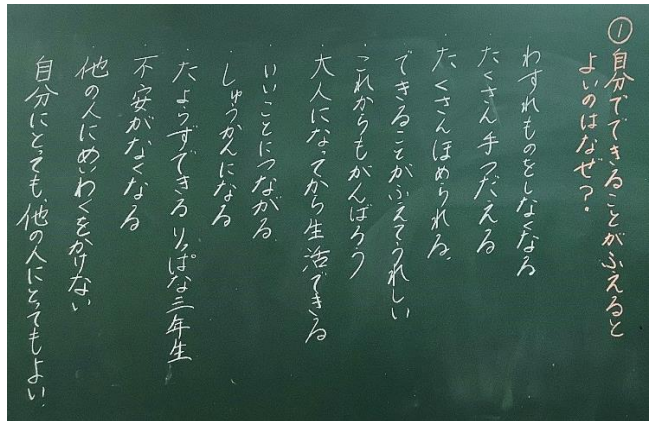 ①自分でできることがふえると
よいのはなぜ?
・わすれものをしなくなる
・たくさん手つだえる
・たくさんほめられる。
・できることがふえてうれしい
・これからもがんばろう
・大人になってから生活できる
・いいことにつながる
・しゅうかんになる
・たよらずできるりっぱな三年生
・不安がなくなる
・他の人にめいわくをかけない
・自分にとっても、他の人にとってもよい。